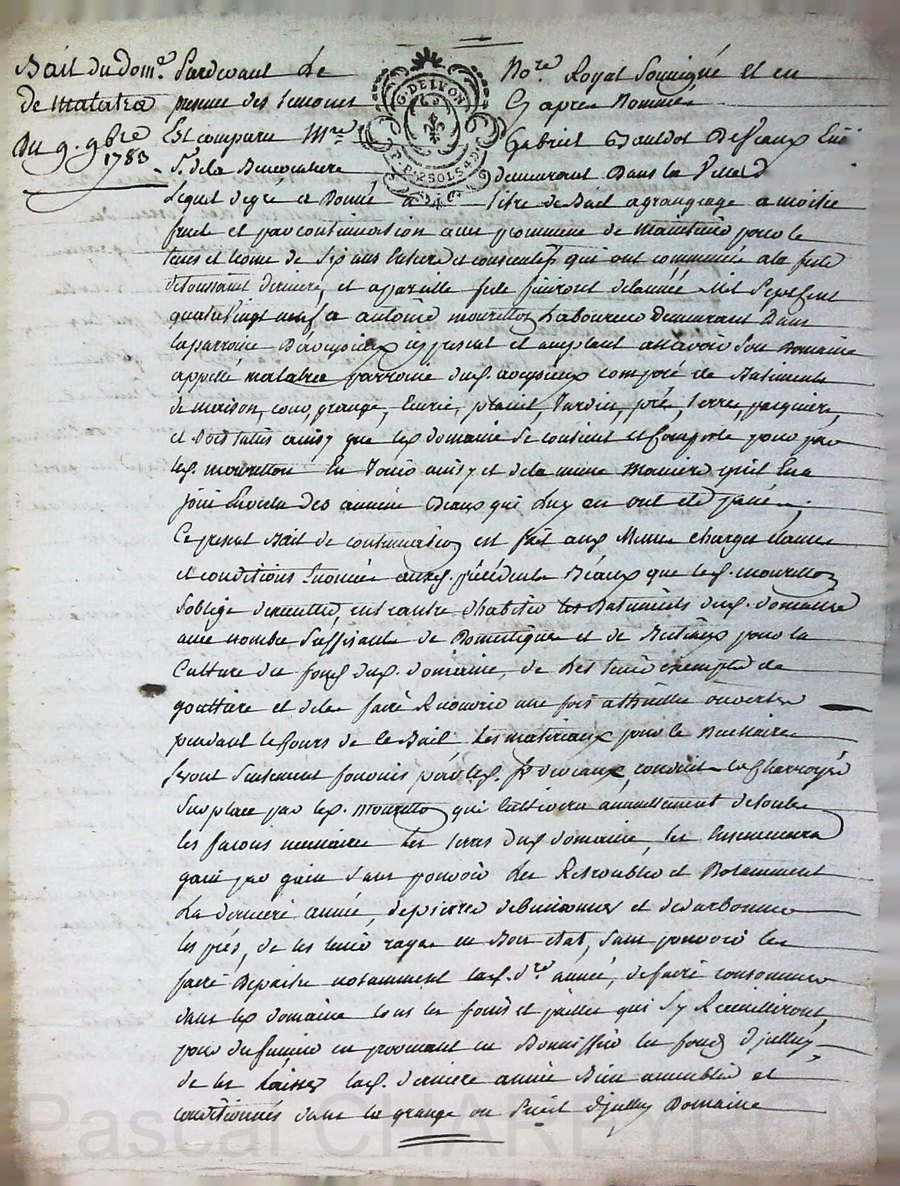 Bail du dom.e
de malatra
Du 9. 9bre
1783
G. DE LYON
2 SOLS 4 D
Pardevant le No.re Royal Soussigné et en
presence des temoins Cy apres Nommés
Est comparu M.re Gabriel
S.r de la demeurant Dans la Ville
Lequel de gré a Donné a titre de Bail a grangeage a moitié
fruit et par continuation avec promesse de maintenir pour le
tems et terme de Six ans Entiers et consecutifs qui ont commencé a la fete
de toussaint derniere, et a pareille fete finiront de l'année Mil Sept Cent
quatre Vingt neuf a antoine mourillon Laboureur demeurant Dans
la parroisse D'aveysieux cy present et acceptant assavoir Son Domaine
appellé malatra parroisse dud. aveysieux composé de Batiments
de maison, cour, grange, Ecurie, jardin, pré, terre, paquiers,
et bois taillis ainsy que led. domaine Se contient et Comporte pour par
led. mourillon En Jouir ainsy et de la meme Maniere qu'il En a
joui En vertu des anciens Beaux qui Luy en ont été passés.
Ce present Bail de continuation est fait aux Memes charges clauses
et conditions Enoncées auxd. précédents Beaux que led. mourillon
S'oblige d'executer, entre autre d'habiter les Batiments dud. domaine
avec nombre Suffisant de Domestiques et de Bestiaux pour la
Culture des fonds dud. domaine, de Les tenir exempts de
gouttiere et de les faire Recouvrir une fois a thuille ouverte
pendant le Cours de ce Bail, Les materiaux pour ce Necessaires
Seront Seulement fournis par led. S.r conduits et Charroyés
Sur place par led. mourillon qui Cultivera annuellement de toutes
les façons necessaires Les terres dud. domaine, les Ensemencera
gain par gain Sans pouvoir Les Retroubler et Notamment
La derniere année,
les prés, de les tenir en Bon état, Sans pouvoir les
faire Depaitre notamment lad. d.re année, de faire consommer
dans led. domaine tous les foins et pailles qui S'y Recueilliront,
pour du fumier en provenant en Bonniffier les fonds d'jcelluy,
de les Laisser lad. derniere année Bien amoncelés et
conditionnés dans la grange ou fenil d'jcelluy Domaine
Pascal CHAREYRON